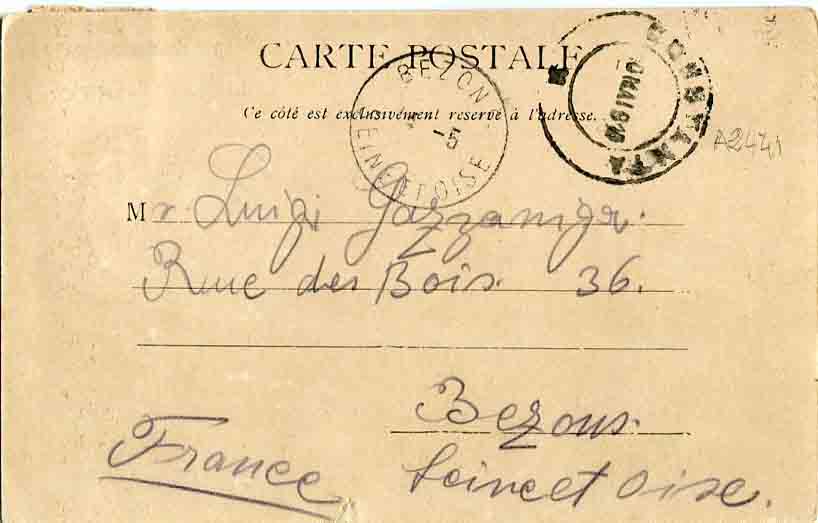 CARTE POSTALE
Ce côté est exclusivement reservé à l'adresse.
BEZON
-5
SEINE ET OISE
CONSTANTA
A2441
Mr. Luigi Gazzaniga.
Rue des Bois. 36.
Bezons.
France
Seine et Oise.